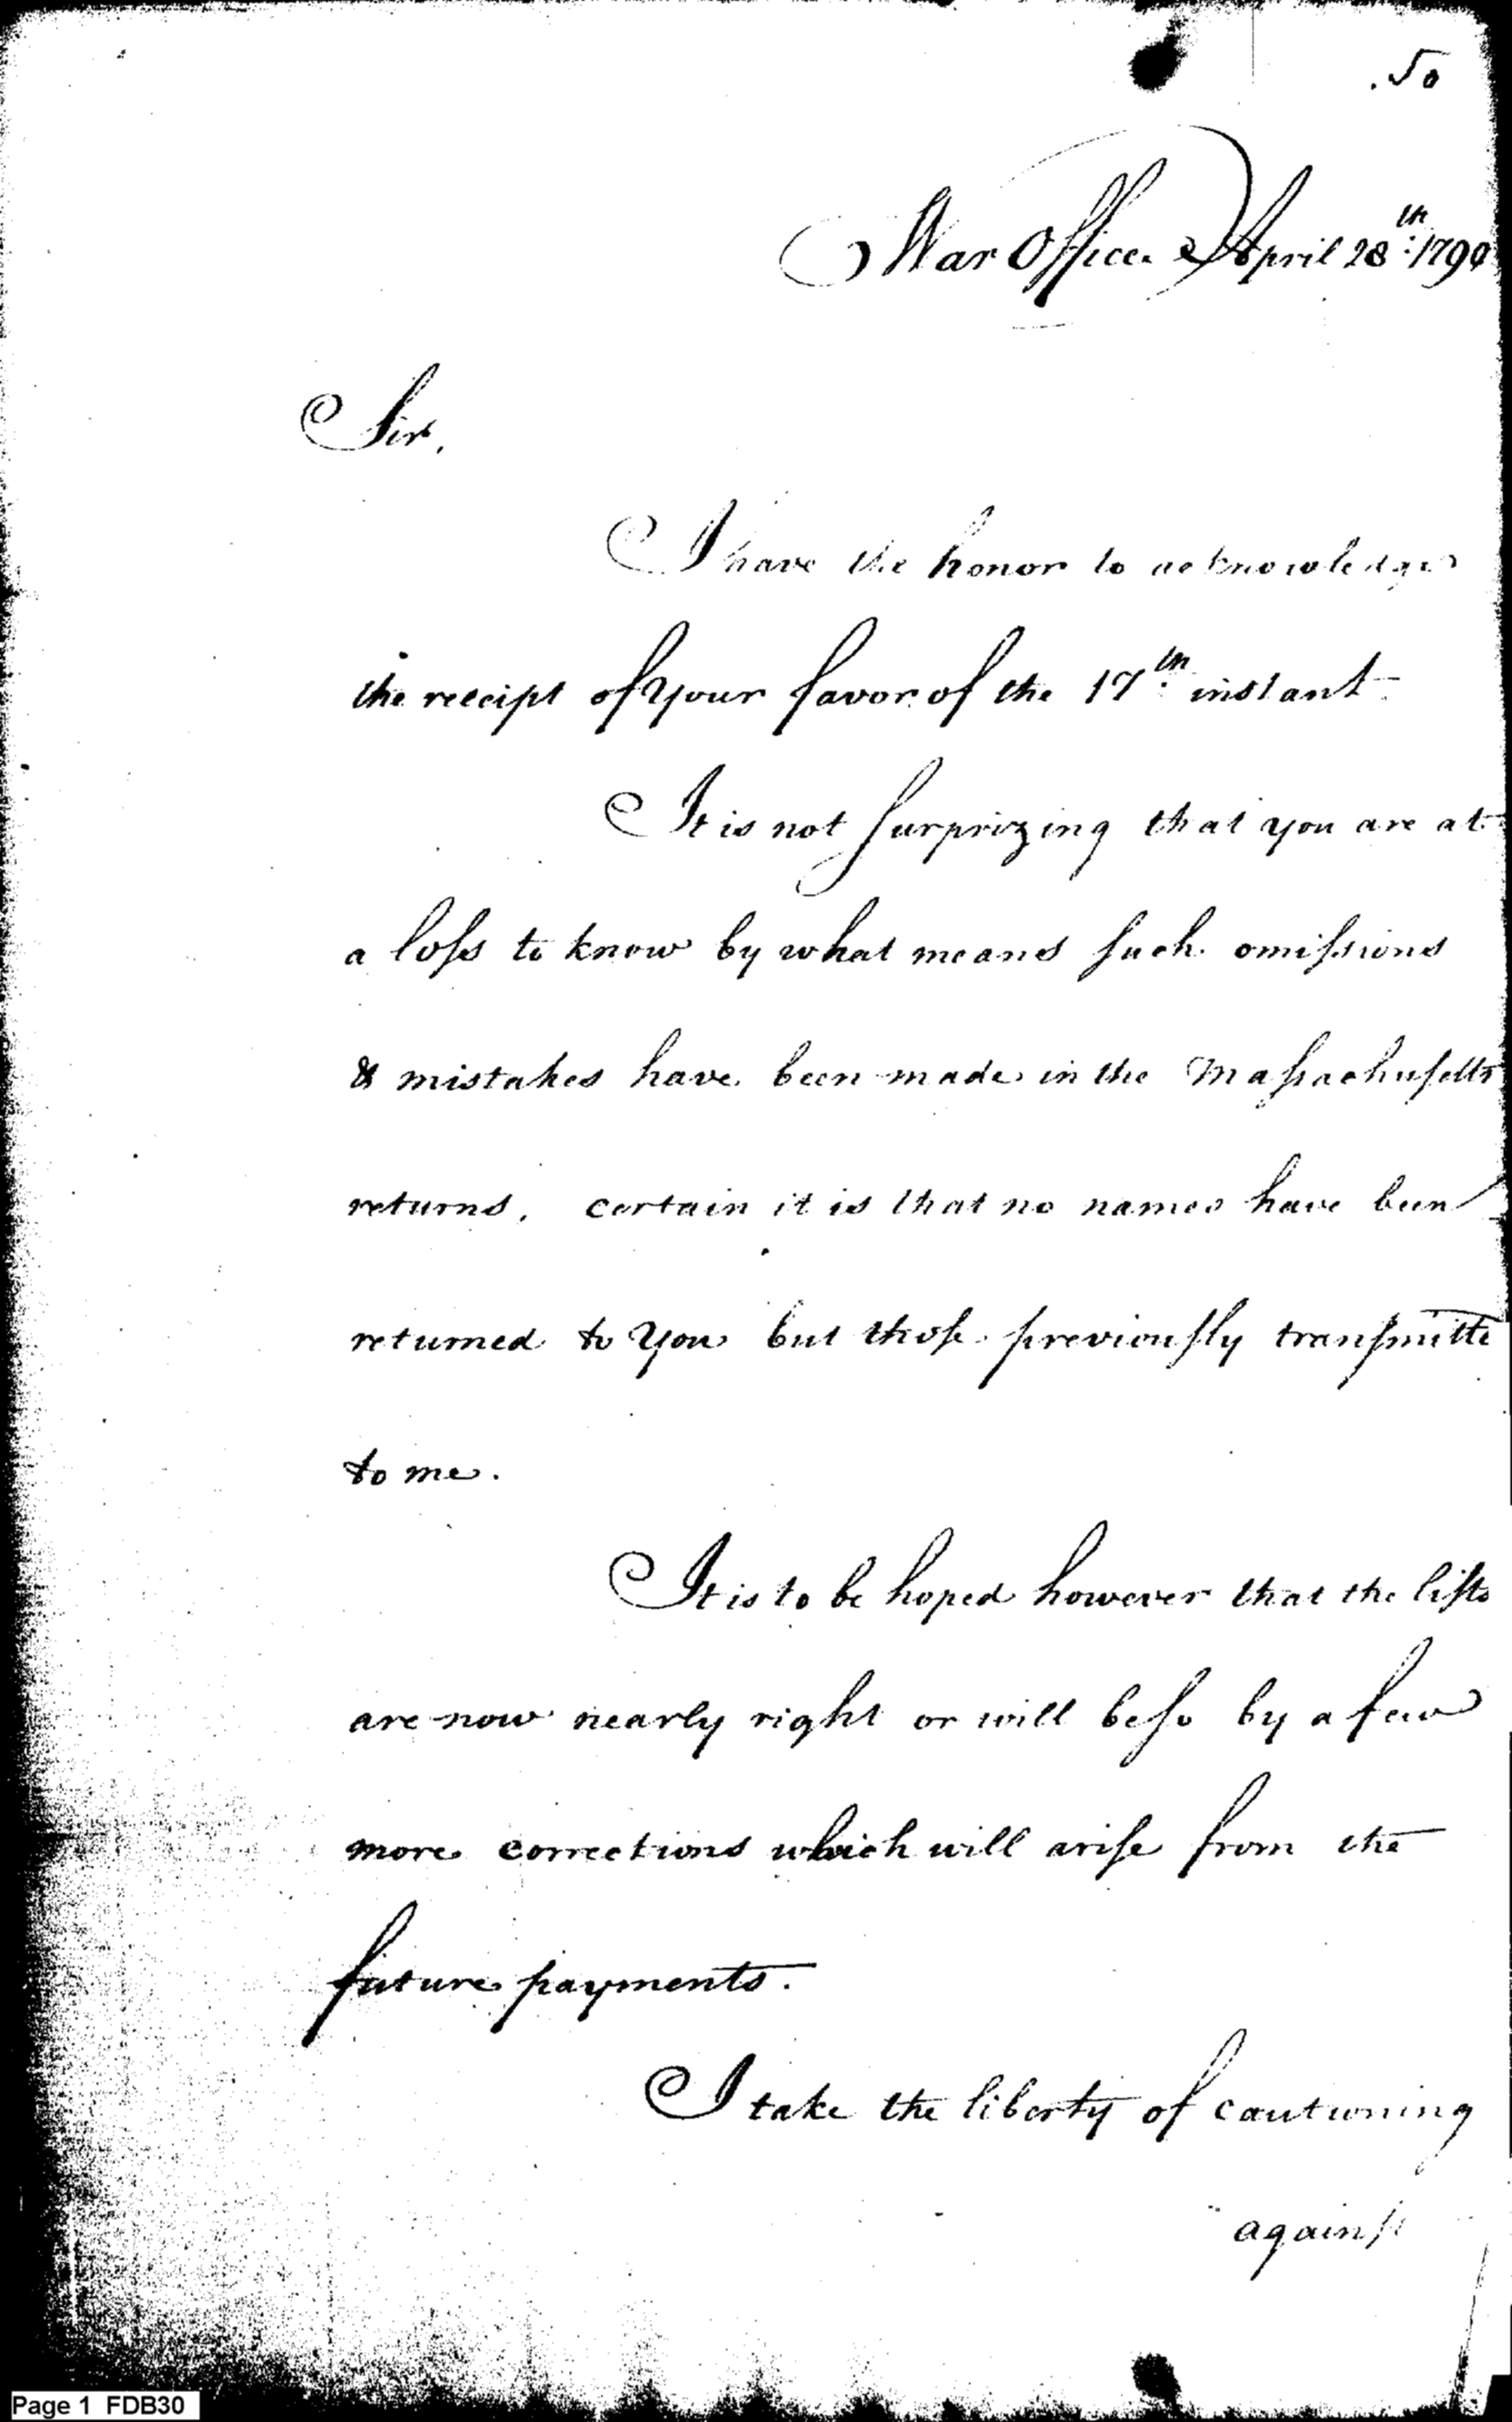 50
War Office April 28th: 1790
Sir,
I have the honor to acknowledge
the receipt of your favor of the 17th: instant
It is not surprizing that you are at
a loſs to know by what means such omiſsions
& mistakes have been made in the Maſsachusetts
returns, certain it is that no names have been
returned to you but those previously transmitte
to me.
It is to be hoped however that the lists
are now nearly right or will be so by a few
more corrections which will arise from the
future payments.
I take the liberty of cautioning
against
Page 1 FDB30